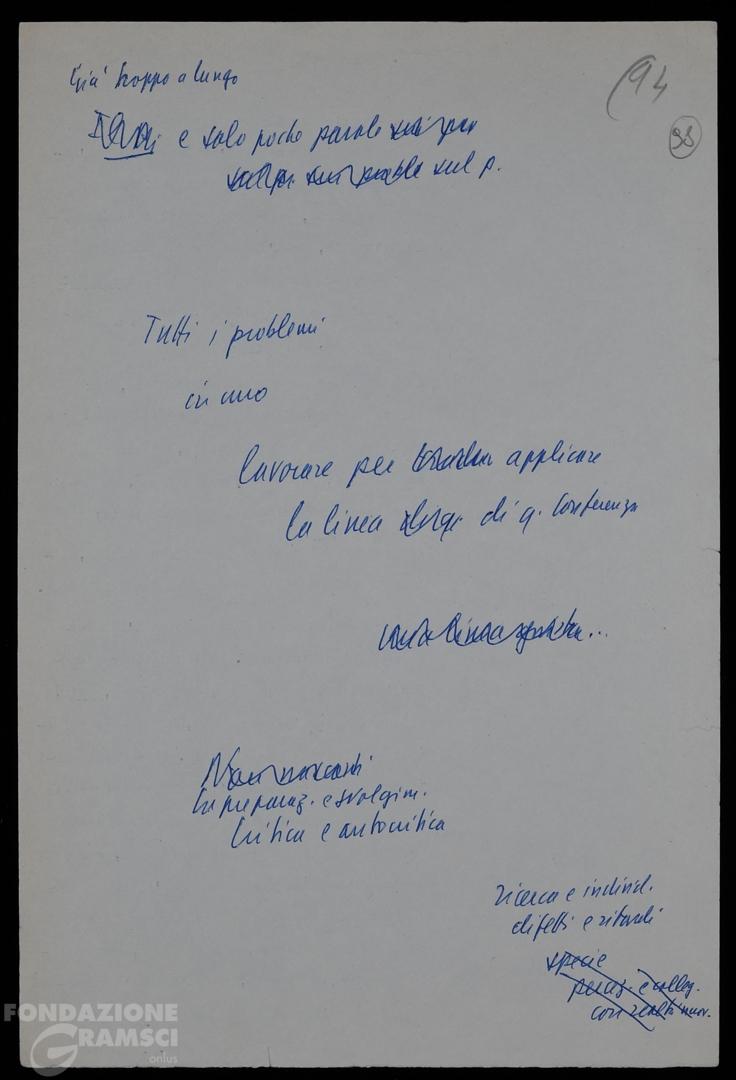 Già troppo a lungo
94
98
e solo poche parole
sul p.
Tutti i problemi
in uno
lavorare per applicare
la linea di q. Conferenza
In preparaz. e svolgim.
Critica e autocritica
ricerca e individ.
difetti e ritardi
specie
peraz. e colleg.
con realtà mov.
FONDAZIONE
GRAMSCI
onlus